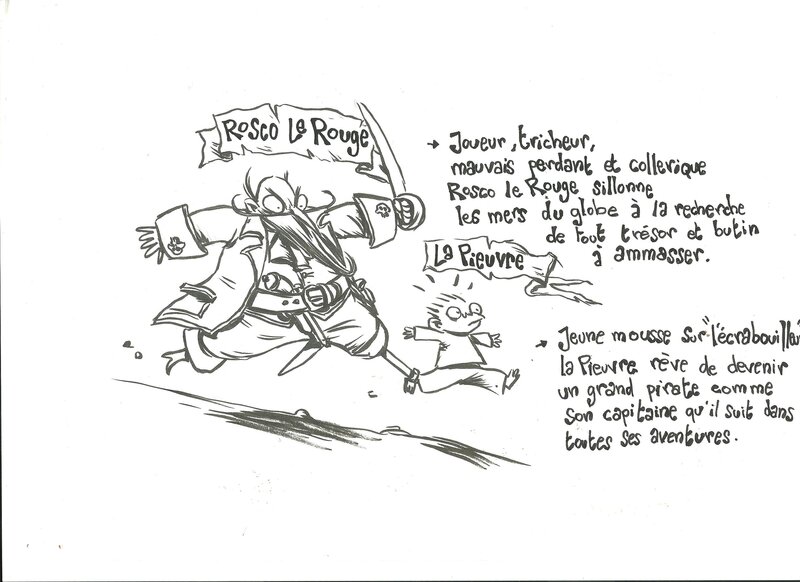 Rosco Le Rouge
→ Joueur, tricheur,
mauvais perdant et collerique
Rosco le Rouge sillonne
les mers du globe à la recherche
de tout trésor et butin
à ammasser.
La Pieuvre
→ Jeune mousse sur "l'écrabouilleur"
la Pieuvre rêve de devenir
un grand pirate comme
son capitaine qu'il suit dans
toutes ses aventures.